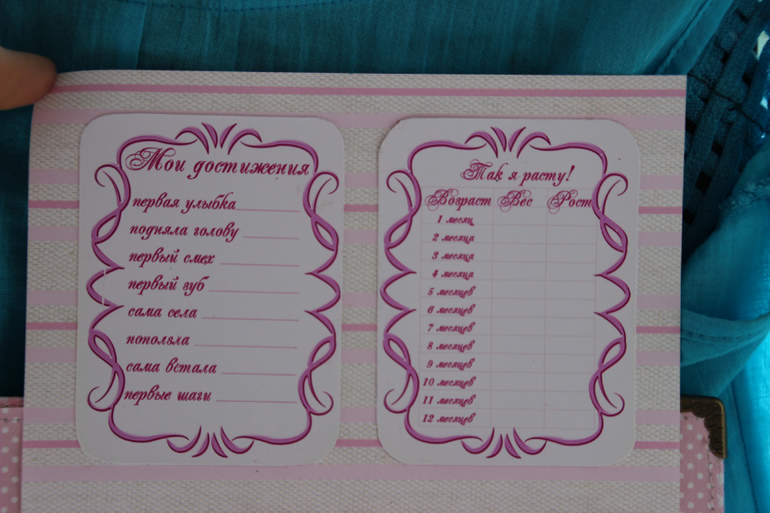 Мои достижения
первая улыбка
подняла голову
первый смех
первый зуб
сама села
поползла
сама встала
первые шаги
Так я расту!
Возраст Вес Рост
1 месяц
2 месяца
3 месяца
4 месяца
5 месяцев
6 месяцев
7 месяцев
8 месяцев
9 месяцев
10 месяцев
11 месяцев
12 месяцев